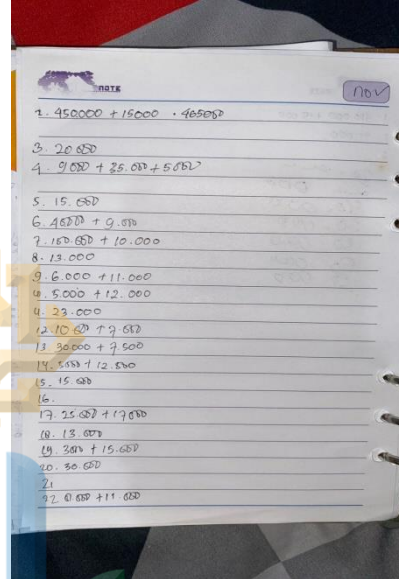 NOTE
nov
1. 450.000 + 15000 • 465000
3. 20 000
4. 9 000 + 35.000 + 5000
5. 15.000
6. + 9.000
7. 100.000 + 10.000
8. 13.000
9. 6.000 + 11.000
10. 5.000 + 12.000
11. 23.000
12. 10.000 + 7.000
13. 30000 + 7.500
14. 5000 + 12.500
15. 15.000
16.
17. 25.000 + 17000
18. 13.000
19. 3000 + 15.000
20. 30.000
21
22 + 11.000